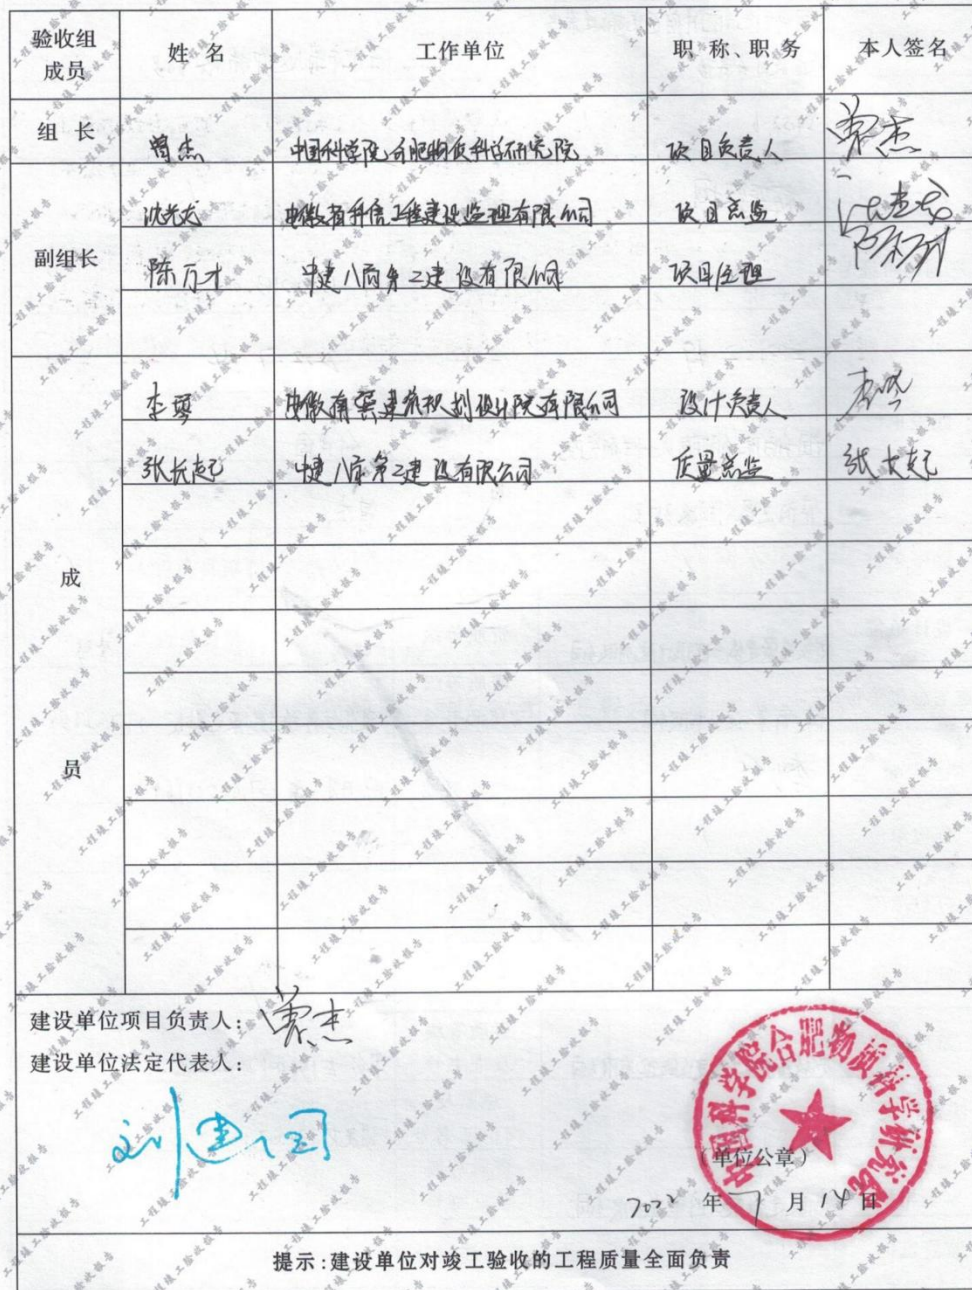 验收组成员 姓 名 工作单位 职 称、职 务 本人签名
组 长 曾杰 中国科学院合肥物质科学研究院 项目负责人 曾杰
安徽省科信工程建设监理有限公司 项目总监
副组长 陈万才 中建八局第二建设有限公司 项目经理
李 设计负责人
张长起 中建八局第二建设有限公司 质量总监 张长起
成
员
建设单位项目负责人: 曾杰
建设单位法定代表人:
刘建国
中国科学院合肥物质科学研究院
(单位公章)
2022 年 7 月 14 日
提示:建设单位对竣工验收的工程质量全面负责
工程竣工验收报告